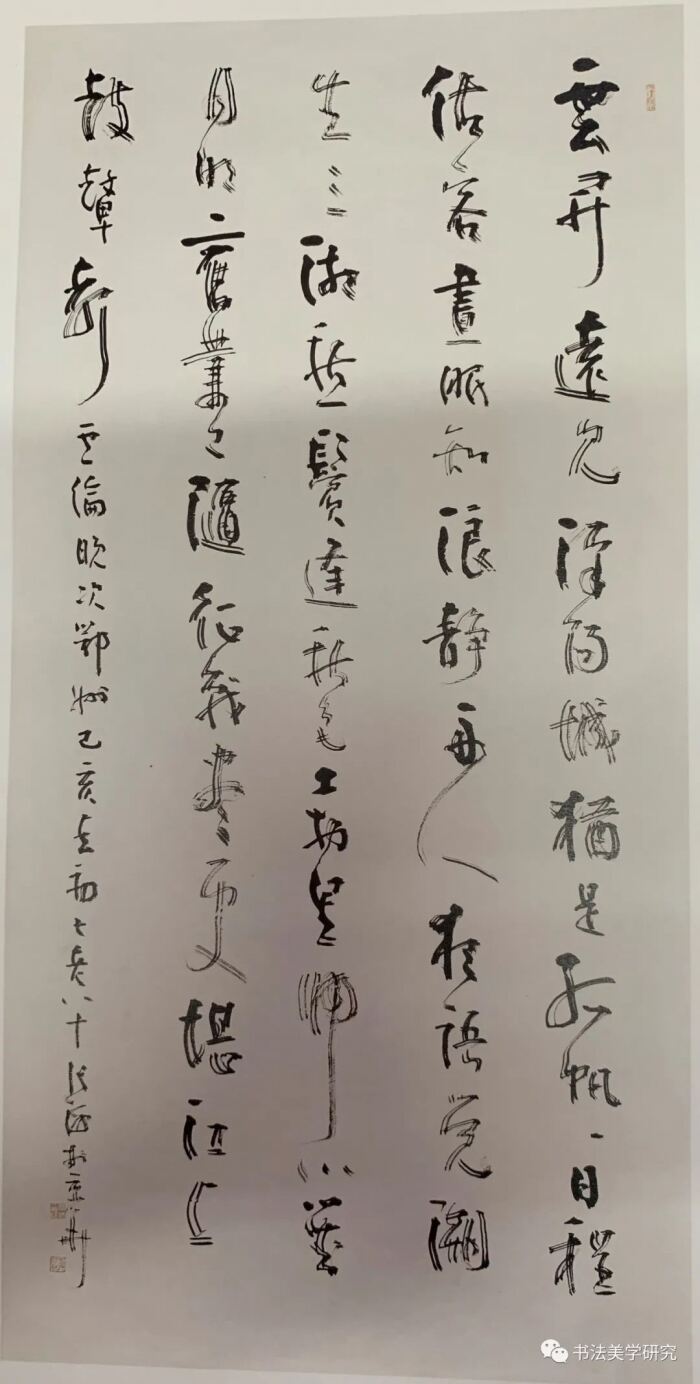 雲開遠見漢陽城猶是孤帆一日程
估客晝眠知浪静舟人夜語覺潮
生三湘愁鬢逢秋色万里歸心對
月明舊業已隨征戰盡更堪江上
鼓鼙聲 盧綸晚次鄂州己亥初七八十張海於京華
书法美学研究